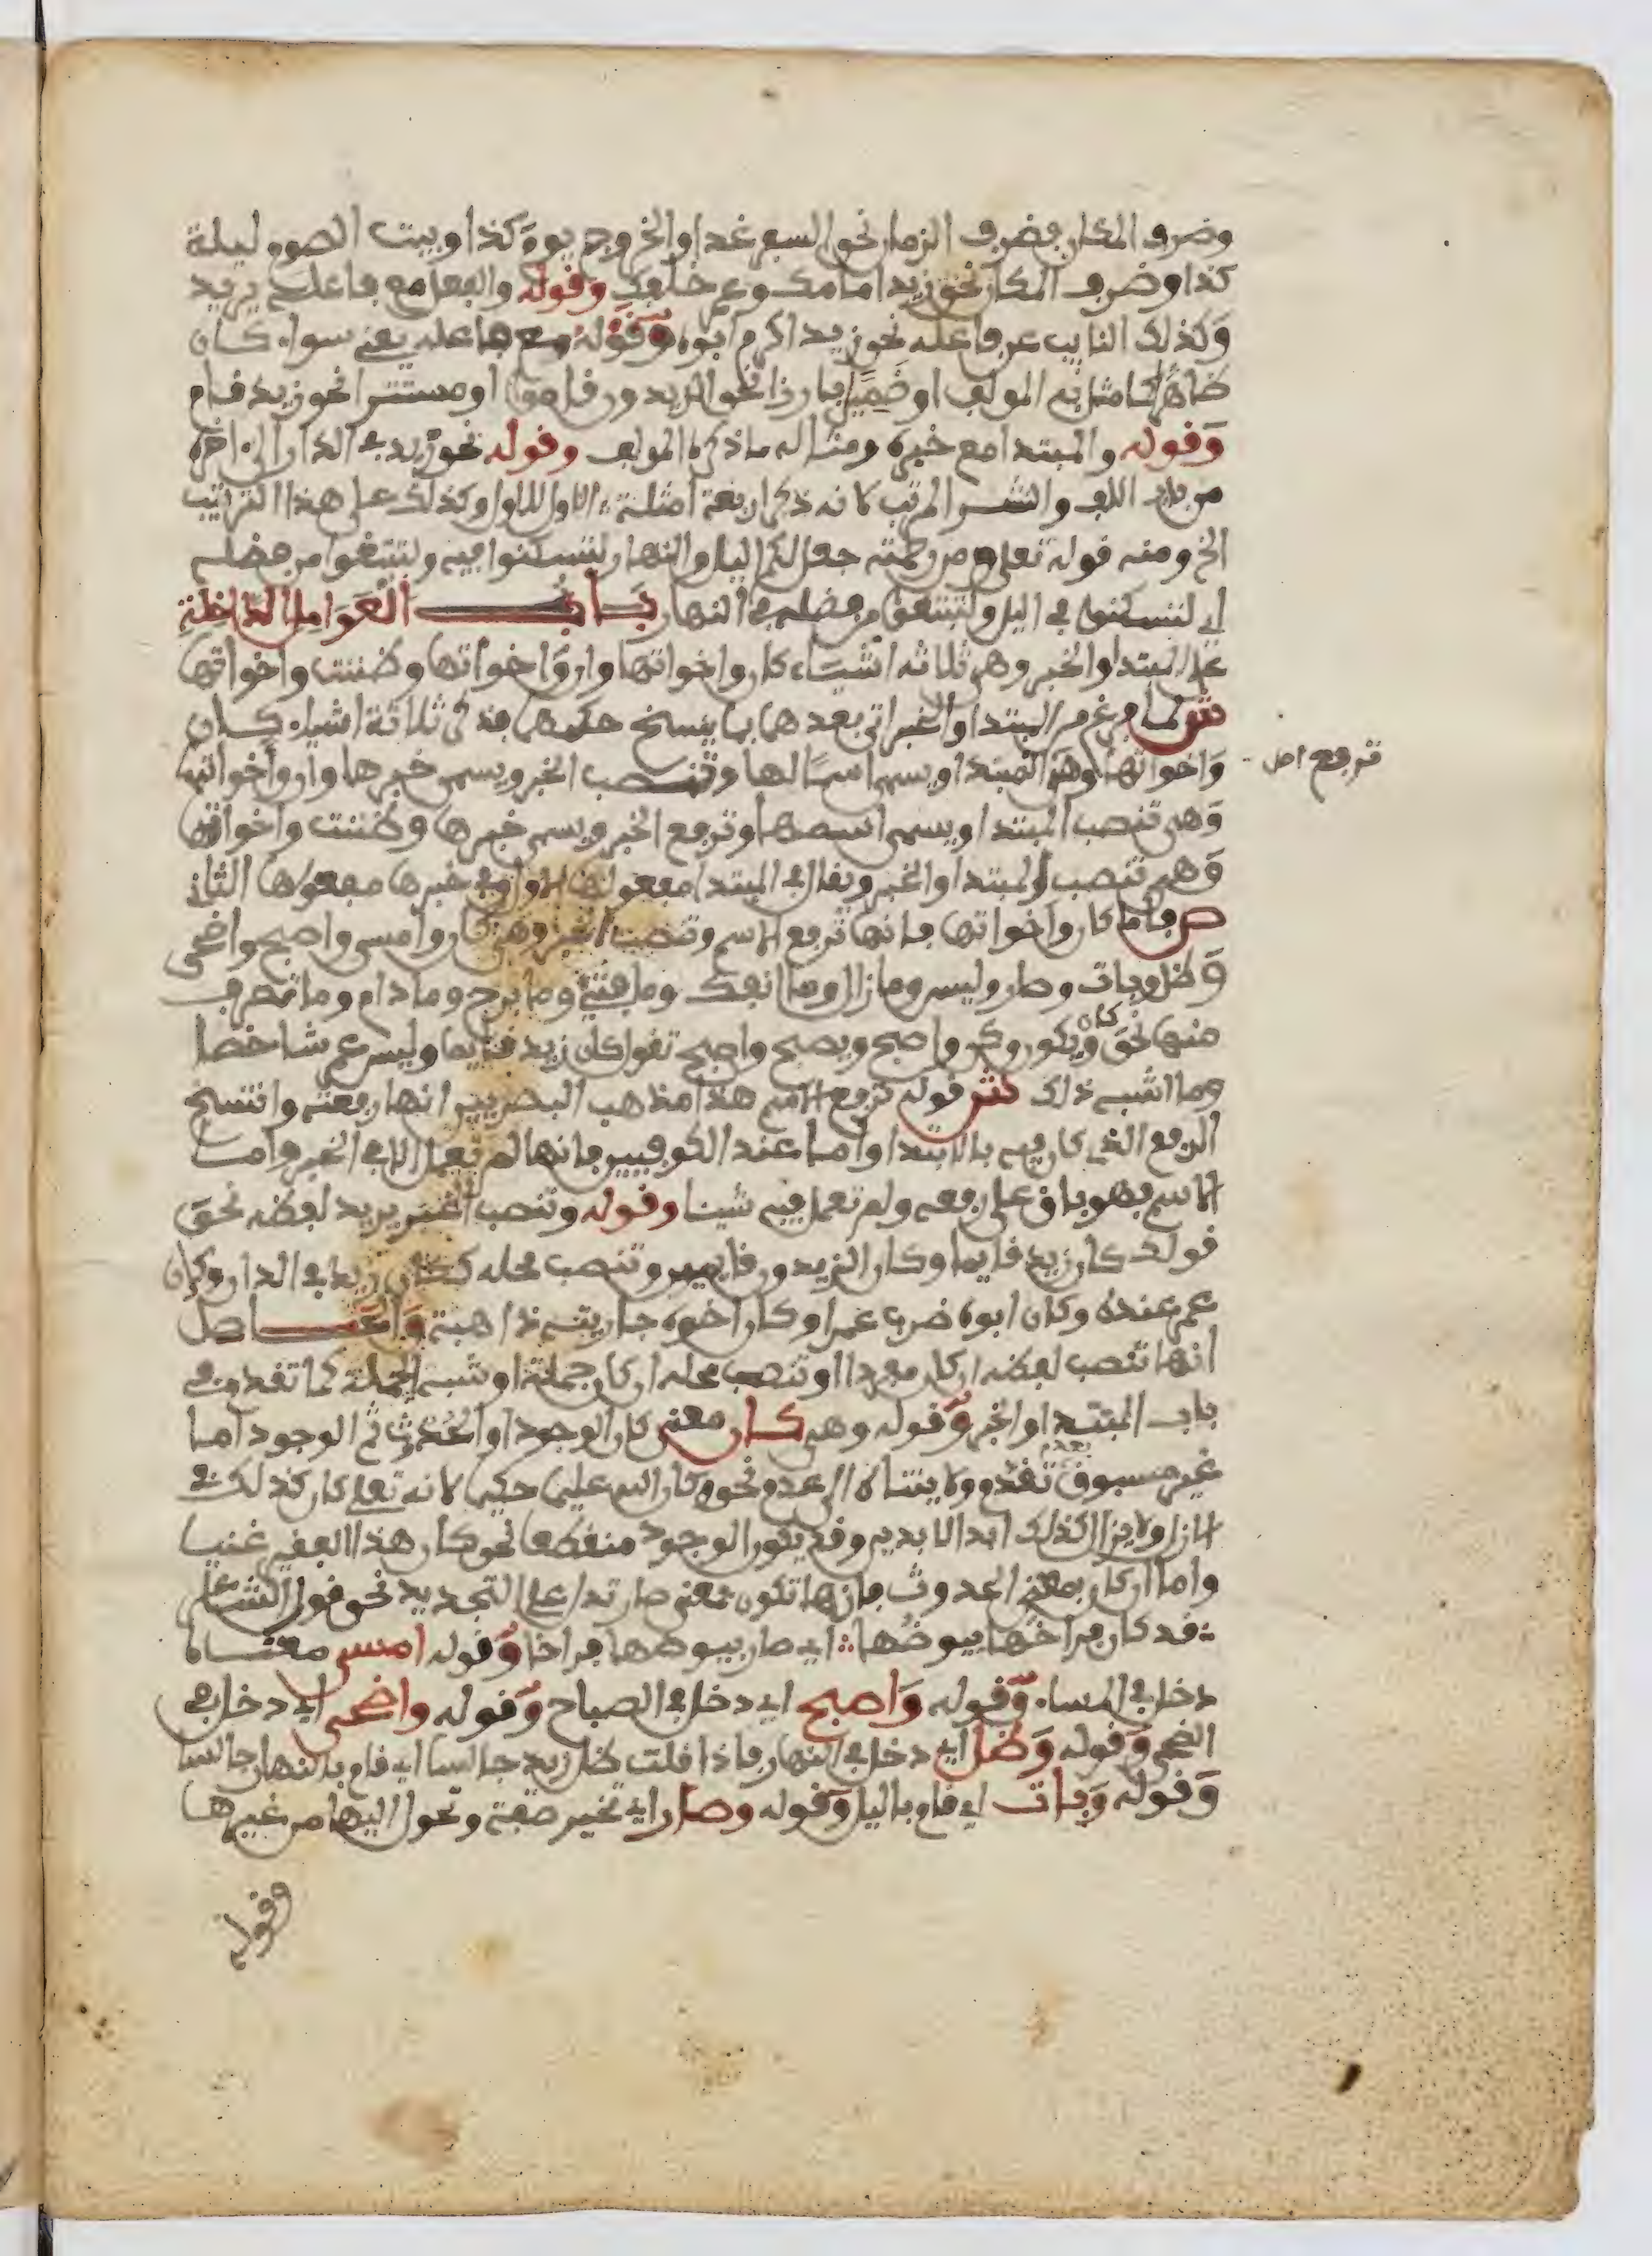 وضرف المكان فضرف الزمان نحو السبر غدا والخروج يوم كذا وبيت الصوم ليلة
كذا وضرف المكان نحو زيد امامك وعم خلفك وقوله والفعل مع فاعله يريد
وكذلك النايب عن فاعله نحو زيد اكرم ابوه وقوله مع فاعله يعني سواء كان
ضاهرا كما مثل به المولف او ضميرا بارزا نحو الزيدون قاموا او مستترا نحو زيد قام
وقوله والمبتدا مع خبره ومثاله ما ذكره المولف وقوله نحو زيد في الدار الى اخره
من باب اللف والنشر المرتب لانه ذكر اربعة امثلة الاول للاول وكذلك على هذا الترتيب
الخ ومنه قوله تعلى ومن رحمته جعل لكم اليل والنهار لتسكنوا فيه ولتبتغوا من فضله
اي لتسكنوا في اليل ولتبتغوا من فضله في النهار باب العوامل الداخلة
على المبتدا والخبر وهي ثلاثه اشياء كان واخواتها وان واخواتها وضننت واخواتها
ش لما فرغ من المبتدا والخبر اتى بعدهما بما ينسخ حكمهما فذكر ثلاثة اشياء كان
واخواتها وهي المبتدا ويسمى اسما لها وتنصب الخبر ويسمى خبرها وان واخواتها
ترفع اصل
وهي تنصب المبتدا ويسمى اسمها وترفع الخبر ويسمى خبرها وضننت واخواتها
وهي تنصب المبتدا والخبر ويقال في المبتدا مفعولها الاول وفي خبرها مفعولها الثاني
ص فاما كان واخواتها فانها ترفع الاسم وتنصب الخبر وهي كان وامسى واصبح واضحى
وضل وبات وصار وليس وما زال وما انفك وما فتئ وما برح وما دام وما تصرف
منها نحو كان ويكون وكن واصبح ويصبح واصبح تقول كان زيد قايما وليس عم شاخصا
وما اشبه ذلك ش قوله ترفع الاسم هذا مذهب البصريين انها رفعته وانتسخ
الرفع الذي كان فيه بالابتدا واما عند الكوفيين فانها لم تعمل الا في الخبر واما
الاسم فهو باق على رفعه ولم تعمل فيه شيئا وقوله وتنصب الخبر يريد لفضه نحو
قولك كان زيد قايما وكان الزيدون قايمين وتنصب محله ككان زيد في الدار وكان
عم عنده وكان ابوه ضرب عمرا وكان اخوه جاريته ذاهبة والحاصل
انها تنصب لفضه ان كان مفردا او تنصب محله ان كان جملة او شبه الجملة كما تقدم في
باب المبتدا والخبر وقوله وهي كان معنى كان الوجود او الحدوث ثم الوجود اما
غير مسبوق بعدم تقدم ولا يتناه الى عدم نحو كان الله عليما حكيما لانه تعلى كان كذلك في
الازل ولا يزال كذلك ابد الابدين وقد يكون الوجود منقطعا نحو كان هذا الفقير غنيا
واما ان كان بمعنى الحدوث فانها تكون بمعنى صار تدل على التجديد نحو قول الشاعر
قد كان فراخا بيوضها اي صار بيوضها فراخا وقوله امسى معناه
دخل في المساء وقوله واصبح اي دخل في الصباح وقوله واضحى اي دخل في
الضحى وقوله وضل اي دخل في النهار فاذا قلت ضل زيد جالسا اي قام بالنهار جالسا
وقوله وبات اي قام باليل وقوله وصار اي تغير صفته وتحول اليها من غيرها
وقوله